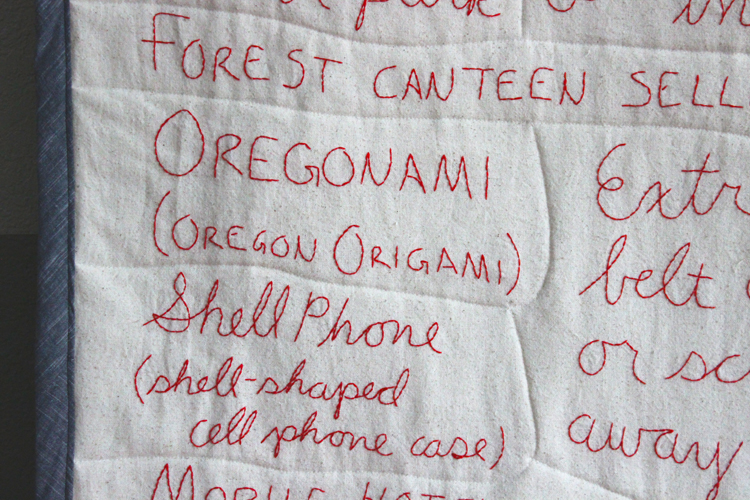 FOREST CANTEEN SELL
OREGONAMI
(OREGON ORIGAMI)
Shell Phone
(shell-shaped
cell phone case)
Extr
belt
or sc
away